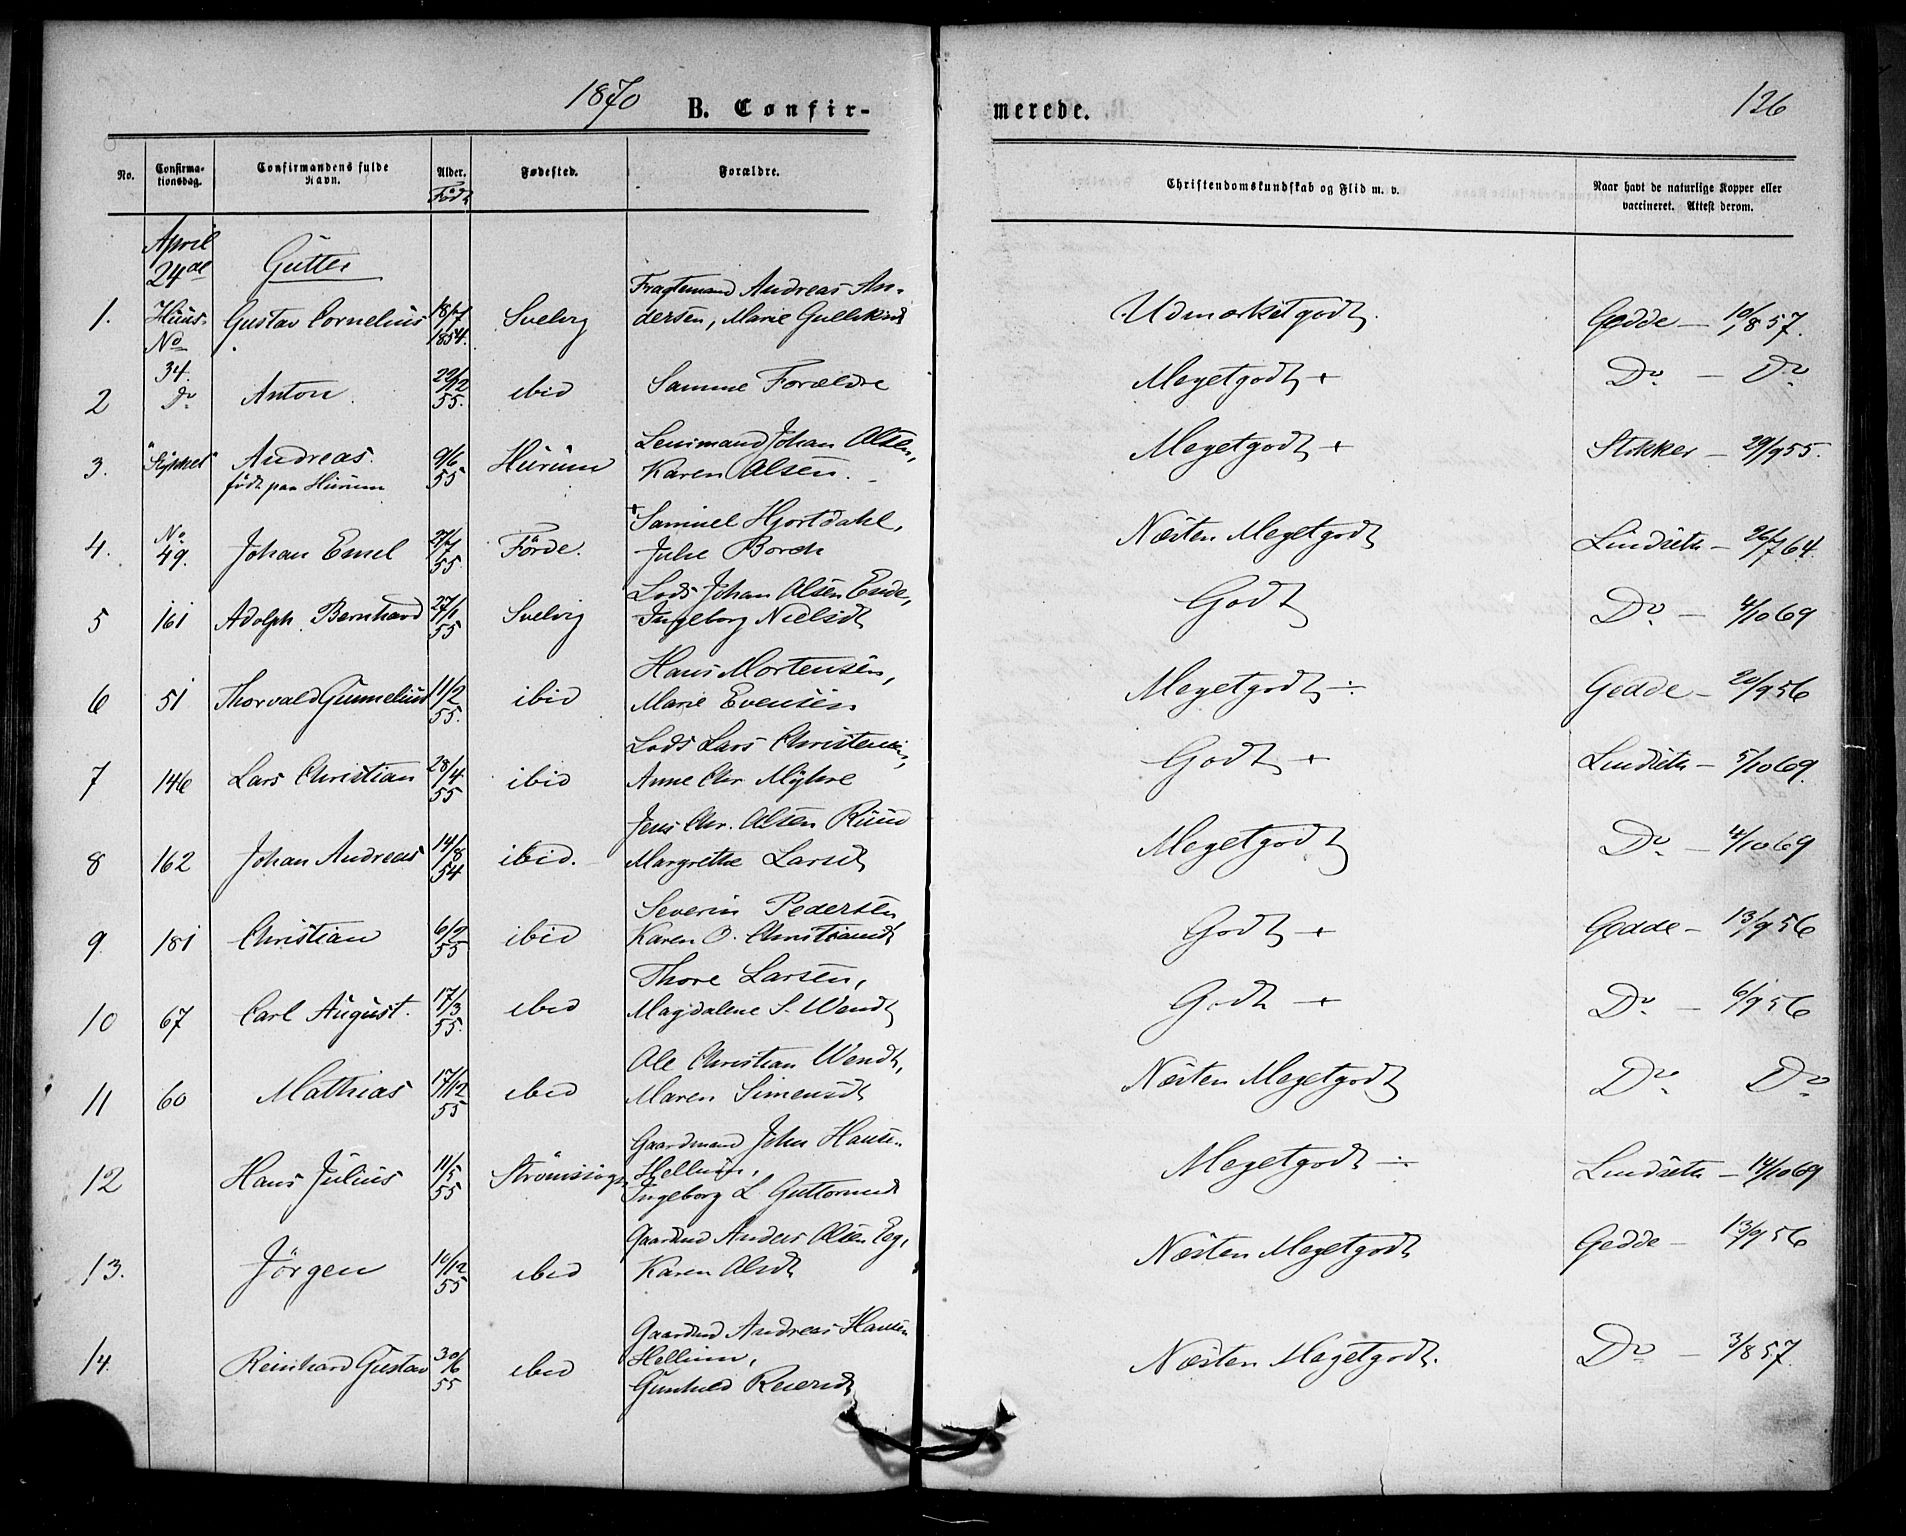 1870
B. Confir-
merede.
126
No.
Confirma-
tionsdag.
Confirmandens fulde
Navn.
Alder.
Født
Fødested.
Forældre.
Christendomskundskab og Flid m. v.
Naar havt de naturlige Kopper eller
vaccineret. Attest derom.
April
24de
Gutter
1. Huus- No 34. Gustav Cornelius 18/7 1854. Svelvig
Fragtemand Andreas An-
dersen, Marie Gulliksdt
Udmærketgodt. Gedde – 10/8 57.
2 Do Anton. 22/12 55. ibid Samme Forældre Megetgodt + Do – Do
3. Andreas. 9/6 55 Hurum
født paa Hurum
Lensmand Johan Olsen,
Karen Olsen.
Megetgodt + Stokker – 29/9 55.
4. No 49. Johan Emil 27/7 55 Førde.
+ Samuel Hjortdahl,
Julie Borch
Næsten Megetgodt Lindseth – 26/7 64.
5 161 Adolph Bernhard 27/1 55 Svelvig
Lods Johan Olsen Eide,
Ingeborg Nielsdt
Godt Do – 4/10 69
6 51 Thorvald Gunnelius 11/2 55. ibid
Hans Mortensen,
Marie Evensen
Megetgodt ÷ Gedde – 20/9 56
7 146 Lars Christian 28/4 55 ibid
Lods Lars Christensen,
Anne Chr. Myhre
Godt + Lindseth – 5/10 69.
8 162 Johan Andreas 14/8 54 ibid.
Jens Chr. Olsen Ruud
Margrethe Larsdt
Megetgodt Do – 4/10 69
9 181 Christian 6/2 55 ibid
Severin Pedersen
Karen O. Christiansdt
Godt + Gedde – 13/9 56
10 67 Carl August. 17/3 55. ibid
Thore Larsen,
Magdalene S. Wendt
Godt + Do – 6/9 56
11 60 Mathias 17/12 55 ibid
Ole Christian Wendt,
Maren Simensdt
Næsten Megetgodt Do Do
12 Hans Julius 11/5 55 Strømssogn
Gaardmand John Hansen
Hellum,
Ingeborg L. Guttormsdt
Megetgodt ÷ Lindseth – 14/10 69
13. Jørgen 10/12 55 ibid
Gaardmd Anders Olsen Eeg,
Karen Olsdt
Næsten Megetgodt Gedde – 13/9 56
14. Reinhard Gustav 30/6 55 ibid
Gaardmd Andreas Hansen
Hellum,
Gunhild Reiersdt
Næsten Megetgodt. Do – 3/8 57.